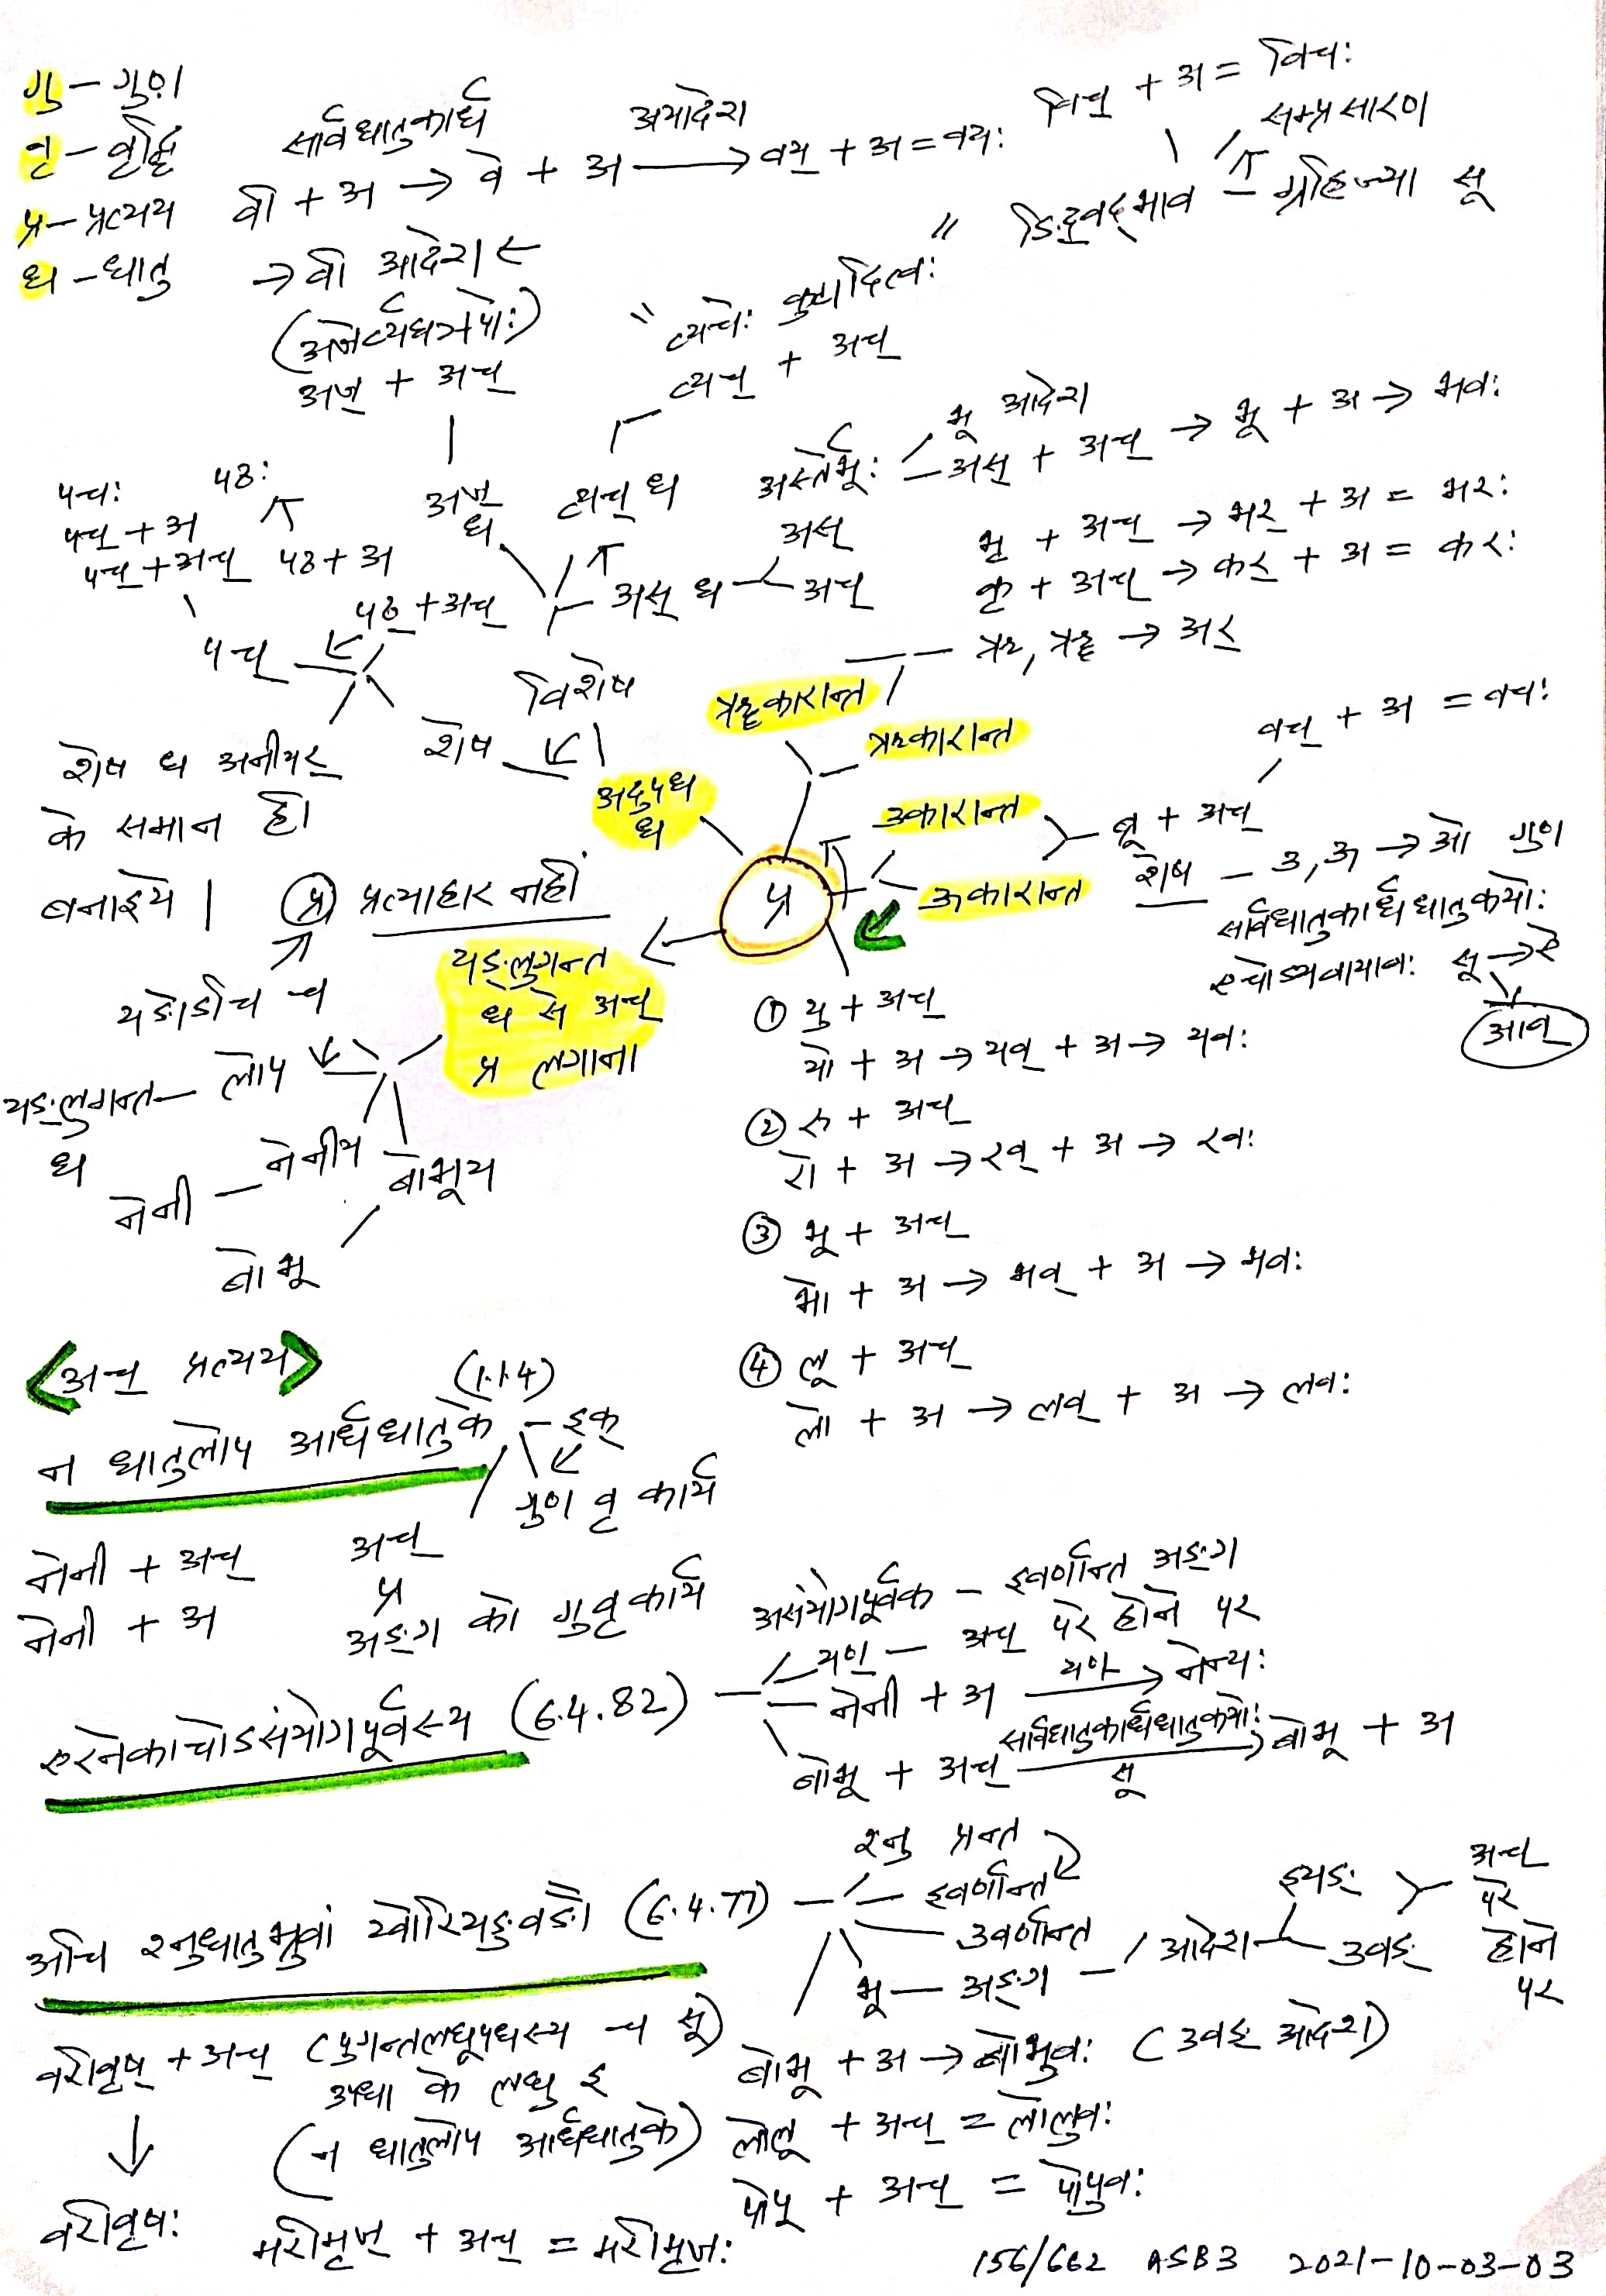 गु - गुण
वृ - वृद्धि
प्र - प्रत्यय
ध - धातु
सार्वधातुकार्ध
वी + अ → वे + अ
अयादेश
→ वय् + अ = वयः
→ वी आदेश ←
(अजेर्व्यघञपोः)
अज् + अच्
विच् + अ = विचः
सम्प्रसारण
ङिद्वद्भाव - ग्रहिज्या सू
" व्यचेः कुटादित्व: "
व्यच् + अच्
भू आदेश
अस्तेर्भूः - अस् + अच् → भू + अ → भवः
पचः
पच् + अ
पच् + अच्
पठः
पठ + अ
पठ् + अच्
पच्
अज् ध
व्यच् ध
अस् ध
अस्
अच्
भृ + अच् → भर् + अ = भरः
कृ + अच् → कर् + अ = करः
ऋ, ॠ → अर्
विशेष
शेष
शेष ध अनीयर्
के समान ही
बनाइये |
ॠकारान्त
ऋकारान्त
अदुपध
ध
उकारान्त
ऊकारान्त
वच् + अ = वचः
ब्रू + अच्
शेष - उ, ऊ → ओ गुण
सार्वधातुकार्धधातुकयोः
एचोऽयवायावः सू → से
अव्
प्र
प्र प्रत्याहार नहीं
यङोऽचि च
यङ्लुगन्त
ध से अच्
प्र लगाना
यङ्लुगन्त - लोप
ध
नेनीय
नेनी
बोभूय
बोभू
① यु + अच्
यो + अ → यव् + अ → यवः
② रु + अच्
रो + अ → रव् + अ → रवः
③ भू + अच्
भो + अ → भव् + अ → भवः
④ लू + अच्
लो + अ → लव् + अ → लवः
<अच् प्रत्यय>
(1.1.4)
न धातुलोप आर्धधातुके - इक्
गुण वृ कार्य
नेनी + अच्
नेनी + अ
अच्
प्र
अङ्ग को गु वृ कार्य
असंयोगपूर्वक - इवर्णान्त अङ्ग
यण् - अच् परे होने पर
एरनेकाचोऽसंयोगपूर्वस्य (6.4.82)
नेनी + अ यण् → नेन्यः
बोभू + अच् सार्वधातुकार्धधातुकयोः सू → बोभू + अ
अचि श्नुधातुभ्रुवां य्वोरियङुवङौ (6.4.77)
श्नु प्रन्त
इवर्णान्त
उवर्णान्त
भ्रू - अङ्ग
आदेश
इयङ्
उवङ्
अच्
परे
होने
पर
वरीवृष् + अच् (पुगन्तलघूपधस्य च सू)
उपधा के लघु इ
(न धातुलोप आर्धधातुके)
↓
वरीवृषः
मरीमृज् + अच् = मरीमृजः
बोभू + अ → बोभुवः (उवङ् आदेश)
लोलू + अच् = लोलुवः
पोपू + अच् = पोपुवः
156/662 ASB3 2021-10-03-03